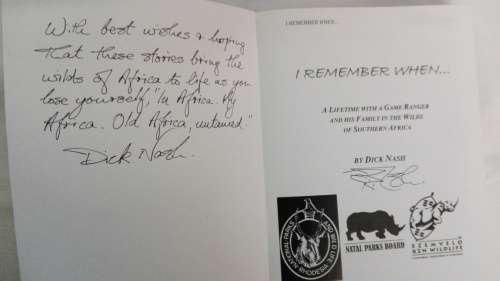 With best wishes & hoping
that these stories bring the
wilds of Africa to life as you
lose yourself, "In Africa. My
Africa. Old Africa, untamed."
Dick Nash.
I REMEMBER WHEN...
I REMEMBER WHEN...
A LIFETIME WITH A GAME RANGER
AND HIS FAMILY IN THE WILDS
OF SOUTHERN AFRICA
BY DICK NASH
RHODESIA NATIONAL PARKS AND WILD LIFE
NATAL PARKS BOARD
EZEMVELO
KZN WILDLIFE